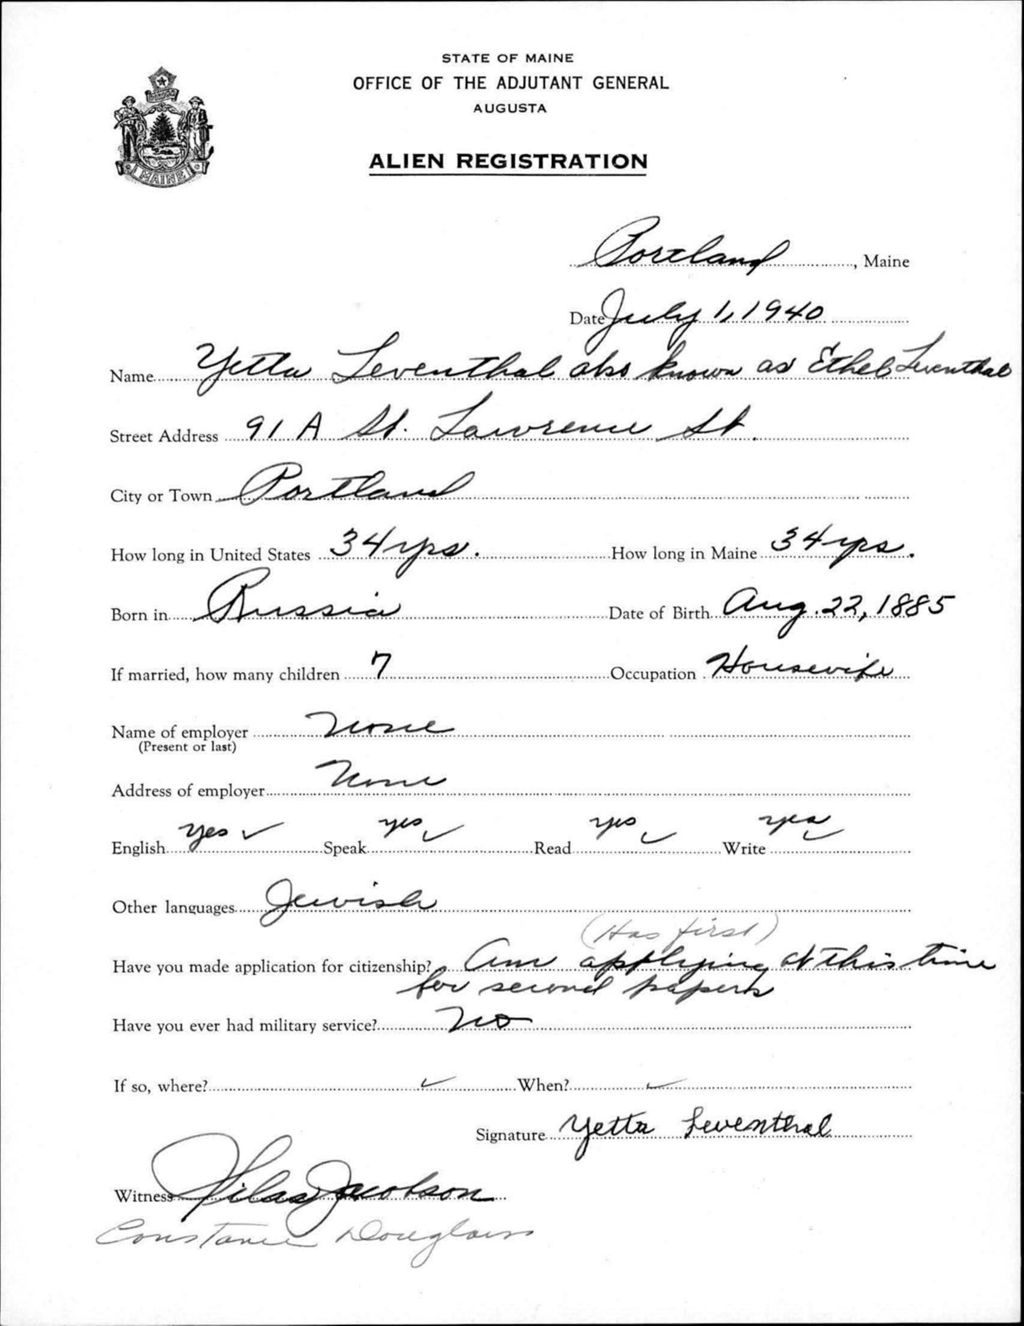 STATE OF MAINE
OFFICE OF THE ADJUTANT GENERAL
AUGUSTA
ALIEN REGISTRATION
MAINE
Portland, Maine
Date July 1, 1940
Name Yetta Leventhal also known as Ethel Leventhal
Street Address 91 A St. Lawrence St.
City or Town Portland
How long in United States 34 yrs. How long in Maine 34 yrs.
Born in Russia Date of Birth Aug. 22, 1885
If married, how many children 7 Occupation Housewife
Name of employer None
(Present or last)
Address of employer None
English yes ✓ Speak yes ✓ Read yes ✓ Write yes ✓
Other languages Jewish
(Has first)
Have you made application for citizenship? Am applying at this time
for second papers
Have you ever had military service? No
If so, where? ✓ When? ✓
Signature Yetta Leventhal
Witness Jacobson
Constance Douglass